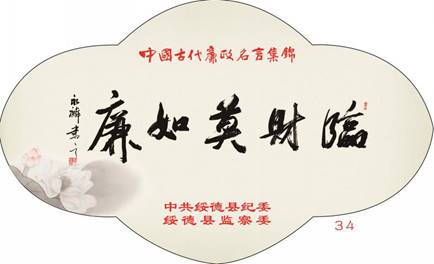 中國古代廉政名言集锦
臨財莫如廉
永麟書
中共绥德县纪委
绥德县监察委
34